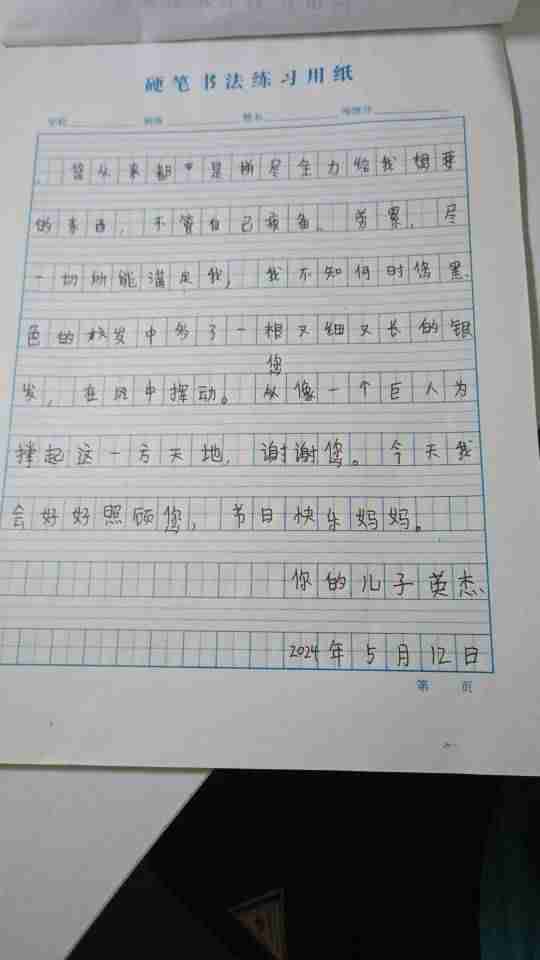 硬笔书法练习用纸
，您从来都是拼尽全力给我想要
的东西，不管自己疲备、劳累，尽
一切所能满足我，我不知何时您黑
色的秀发中多了一根又细又长的银
发，在风中挥动。您从像一个巨人为
撑起这一方天地，谢谢您。今天我
会好好照顾您，节日快乐妈妈。
你的儿子英杰
2024年5月12日
第 页